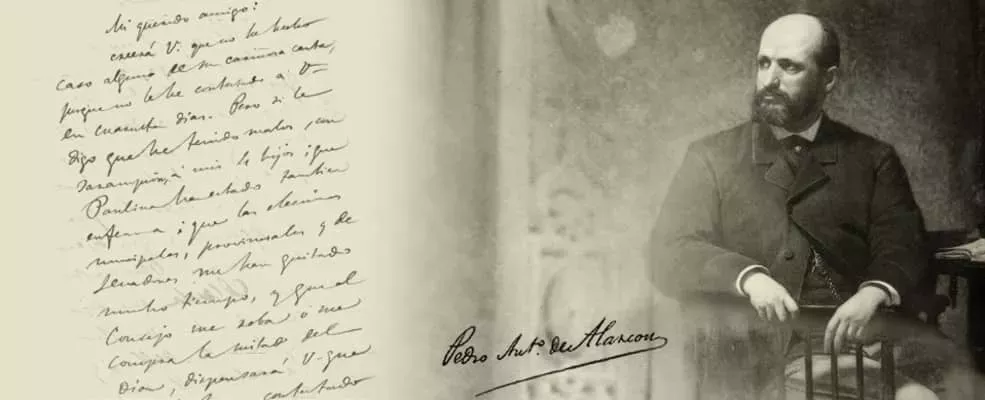 Mi querido amigo:
creerá V. que no he hecho
caso alguno de su cariñosa carta,
porque no le he contestado á V-
en cuarenta dias. Pero si le
digo que he tenido malos, con
sarampión, á mis hijos; que
Paulina ha estado tambien
enferma; que las elecciones
municipales, provinciales y de
Senadores me han quitado
mucho tiempo, y que el
Consejo me roba ó me
compra la mitad del
dia, dispensará V. que
contestado
Pedro Antº. de Alarcon